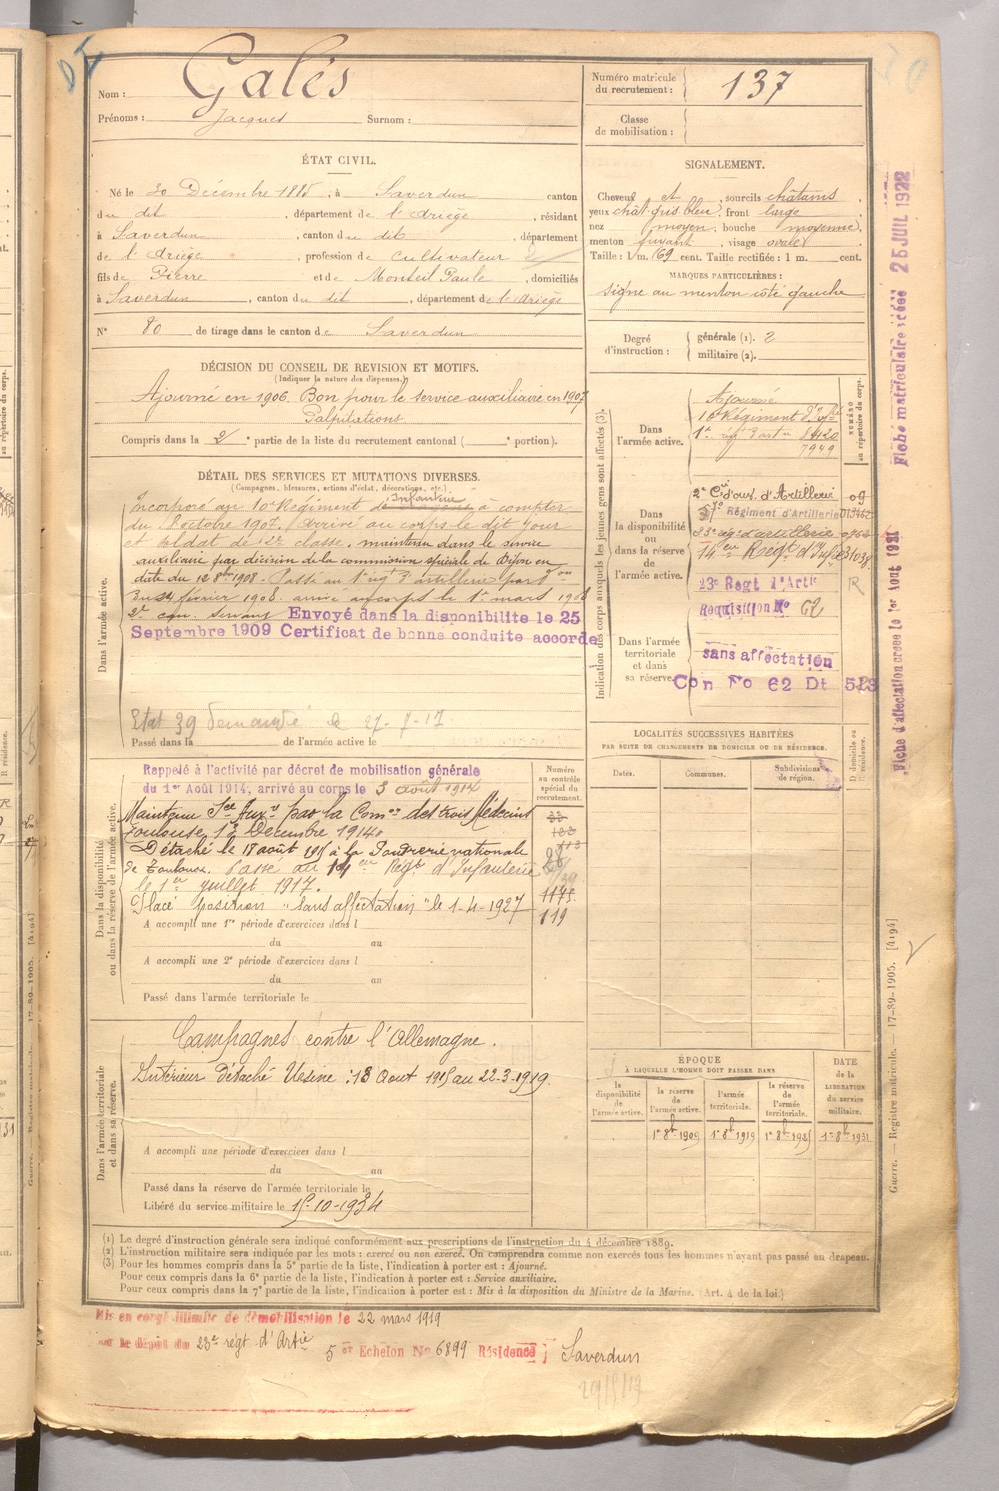 Nom : Galès
Prénoms : Jacques Surnom :
Numéro matricule du recrutement : 137
Classe de mobilisation :
ÉTAT CIVIL.
Né le 30 Décembre 1885, à Saverdun canton
du dit, département de l'Ariège, résidant
à Saverdun, canton du dit, département
de l'Ariège, profession de cultivateur
fils de Pierre et de Monteil Paule, domiciliés
à Saverdun, canton du dit, département de l'Ariège
N° 80 de tirage dans le canton de Saverdun
SIGNALEMENT.
Cheveux et sourcils châtains,
yeux chât gris bleu, front large
nez moyen, bouche moyenne,
menton fuyant, visage ovale
Taille : 1 m. 69 cent. Taille rectifiée : 1 m. cent.
MARQUES PARTICULIÈRES :
signe au menton côté gauche
Degré d'instruction : générale (1). 2
militaire (2).
DÉCISION DU CONSEIL DE REVISION ET MOTIFS.
(Indiquer la nature des dispenses.)
Ajourné en 1906. Bon pour le service auxiliaire en 1907
Palpitations
Compris dans la 2e partie de la liste du recrutement cantonal ( e portion).
DÉTAIL DES SERVICES ET MUTATIONS DIVERSES.
(Campagnes, blessures, actions d'éclat, décorations, etc.)
Dans l'armée active.
Incorporé au 10e Régiment d'Infanterie à compter
du 8 octobre 1907. Arrivé au corps le dit jour
et soldat de 2e classe. maintenu dans le service
auxiliaire par décision de la commission spéciale de Dijon en
date du 12 8bre 1908. Passé au 1er régt d'artillerie par Don
du 24 février 1908. arrivé au corps le 1er mars 1908
2e can. servant Envoyé dans la disponibilité le 25
Septembre 1909 Certificat de bonne conduite accordé
Etat 39 demandé le 27-8-17
Passé dans la de l'armée active le
Indication des corps auxquels les jeunes gens sont affectés (3).
NUMÉRO au répertoire du corps.
Dans l'armée active.
Ajourné
10 Régiment d'Inf
1er régt d'art
7949
Dans la disponibilité ou dans la réserve de l'armée active.
2e Cie d'ouv. d'Artillerie 09
Régiment d'Artillerie
23e régt d'artillerie
14eme Regt d'Infie
23e Regt d'Artie
Requisition No 62
R
Dans l'armée territoriale et dans sa réserve.
sans affectation
Con No 62 Dt 523
Fiche matriculaire créée 25 JUIL 1922
Fiche d'affectation créée le 1er Aout 1921
Dans la disponibilité ou dans la réserve de l'armée active.
Numéro au contrôle spécial du recrutement.
Rappelé à l'activité par décret de mobilisation générale
du 1er Août 1914, arrivé au corps le 3 août 1914
Maintenu Sce Auxre par la Comon des trois Médecins
Toulouse 12 Décembre 1914
Détaché le 17 août 1915 à la Poudrerie nationale
de Toulouse. Passé au 14eme Régt d'Infanterie
le 1er juillet 1917.
Placé position "sans affectation" le 1-4-1927
1145
119
A accompli une 1re période d'exercices dans l
du au
A accompli une 2e période d'exercices dans l
du au
Passé dans l'armée territoriale le
LOCALITÉS SUCCESSIVES HABITÉES
PAR SUITE DE CHANGEMENTS DE DOMICILE OU DE RÉSIDENCE.
Dates. Communes. Subdivisions de région. D domicile ou R résidence.
Dans l'armée territoriale et dans sa réserve.
Campagnes contre l'Allemagne.
Intérieur Détaché Usine : 18 Août 1915 au 22-3-1919.
A accompli une période d'exercices dans l
du au
Passé dans la réserve de l'armée territoriale le
Libéré du service militaire le 15-10-1934
ÉPOQUE
À LAQUELLE L'HOMME DOIT PASSER DANS
la disponibilité de l'armée active.
la réserve de l'armée active.
l'armée territoriale.
la réserve de l'armée territoriale.
DATE de la LIBÉRATION du service militaire.
1er 8bre 1909 1er 8bre 1919 1er 8bre 1925 1er 8bre 1931
(1) Le degré d'instruction générale sera indiqué conformément aux prescriptions de l'instruction du 4 décembre 1889.
(2) L'instruction militaire sera indiquée par les mots : exercé ou non exercé. On comprendra comme non exercés tous les hommes n'ayant pas passé au drapeau.
(3) Pour les hommes compris dans la 5e partie de la liste, l'indication à porter est : Ajourné.
Pour ceux compris dans la 6e partie de la liste, l'indication à porter est : Service auxiliaire.
Pour ceux compris dans la 7e partie de la liste, l'indication à porter est : Mis à la disposition du Ministre de la Marine. (Art. 4 de la loi.)
Guerre. — Registre matricule. — 17-89-1905. [4194]
Mis en congé illimité de démobilisation le 22 mars 1919
par le dépôt du 23e régt d'Artie 5 er Echelon No 6899 Résidence : Saverdun